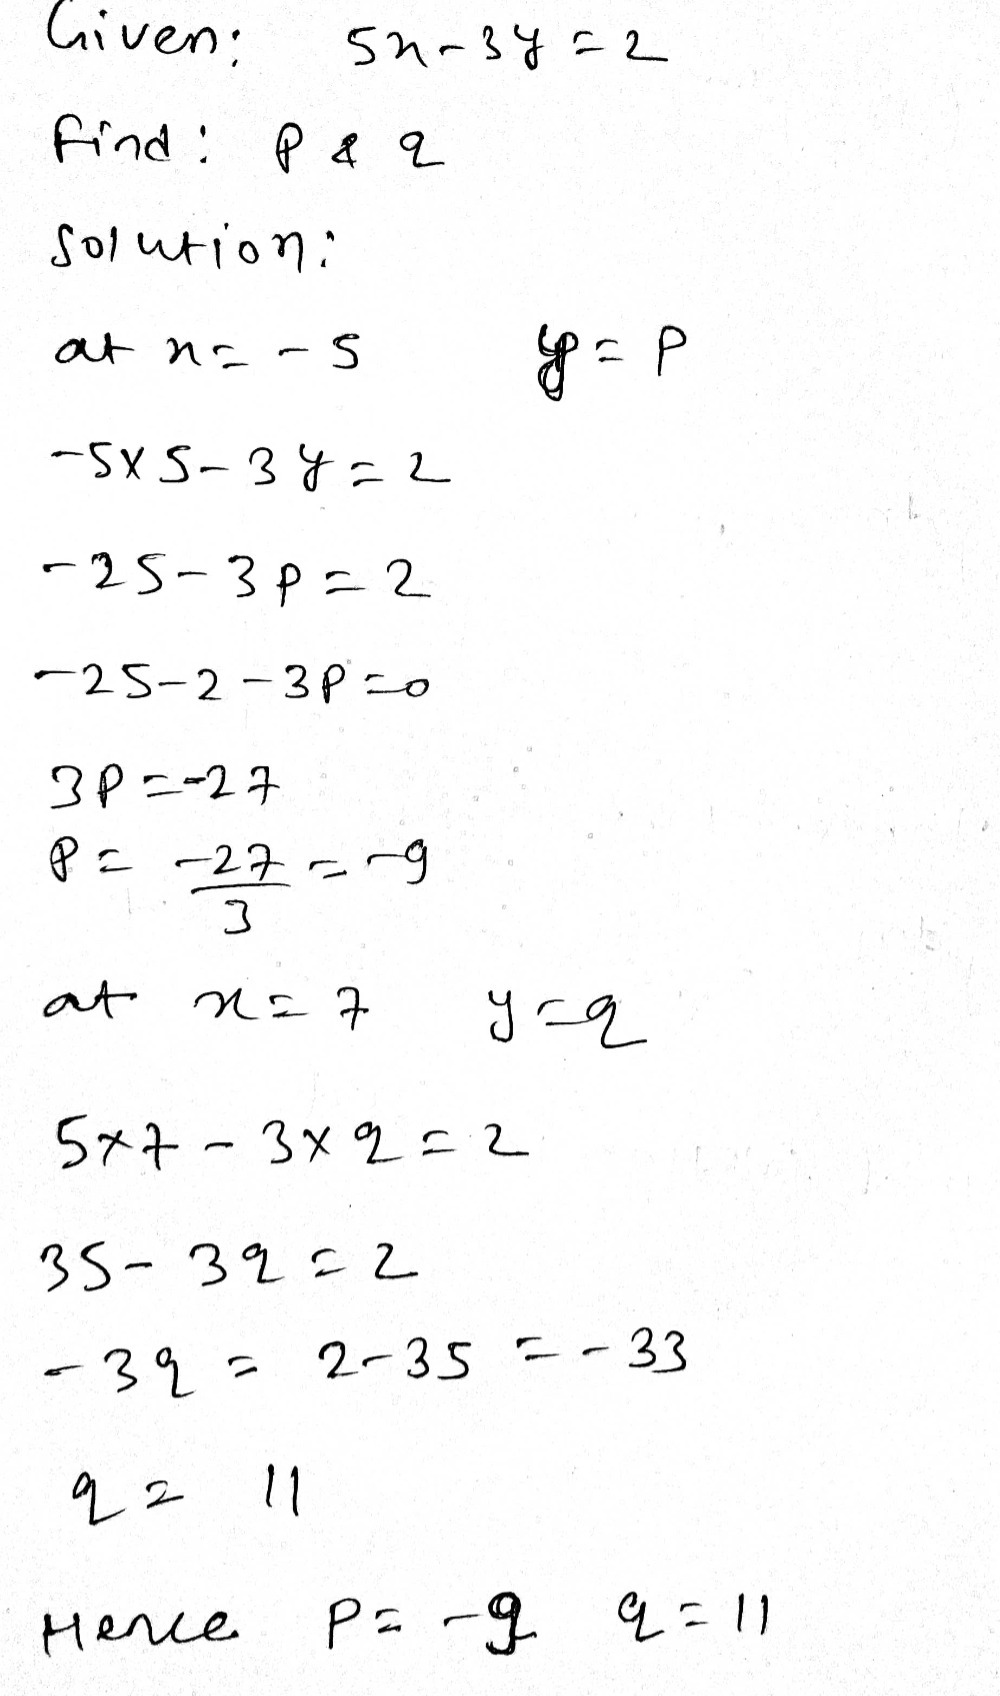 Given: 5x-3y=2
find: P & q
Solution:
at x=-5 y=P
-5×5-3y=2
-25-3p=2
-25-2-3P=0
3P=-27
P= -27/3 =-9
at x=7 y=q
5×7-3×q=2
35-3q=2
-3q=2-35=-33
q= 11
Hence P=-9 q=11